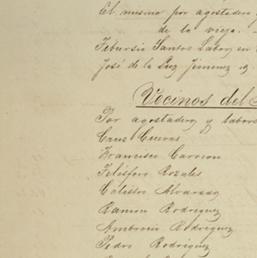 El mismo por agostadero
de la vieja.
Tibursio Santos Labor en
José de la Luz Jimenez y
Vecinos del
Por agostadero y labores
Cruz Cuevas
Francisco Carreon
Telésforo Rosales
Alvarez
Ramon Rodriguez
Ambrosio Rodriguez
Pedro Rodriguez